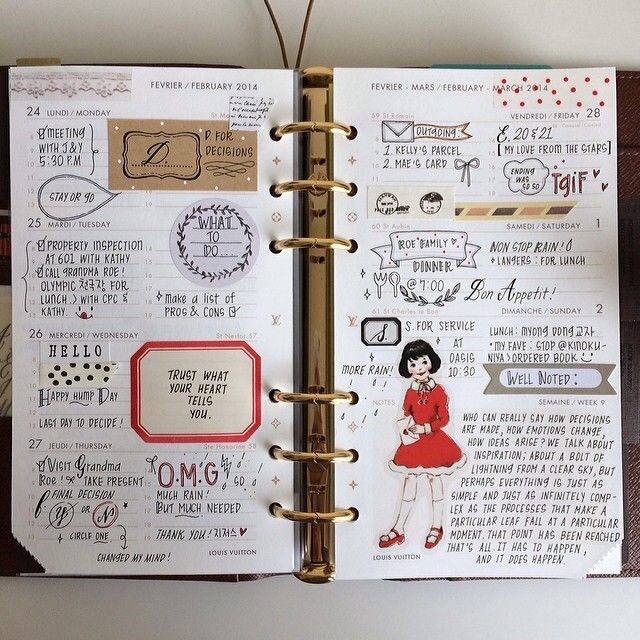 FEVRIER / FEBRUARY 2014
24 LUNDI / MONDAY
MEETING
WITH J&Y
5:30 P.M
D.
D. FOR
DECISIONS
STAY OR GO
25 MARDI / TUESDAY
PROPERTY INSPECTION
AT 601 WITH KATHY
CALL GRANDMA ROE!
OLYMPIC 천국김 FOR
LUNCH :) WITH CPC &
KATHY.
WHAT
TO
DO....
make a list of
PROS & CONS
26 MERCREDI / WEDNESDAY
St Nestor 57
HELLO
HAPPY HUMP DAY
LAST DAY TO DECIDE!
TRUST WHAT
YOUR HEART
TELLS
YOU.
27 JEUDI / THURSDAY
Ste Honorine 58
VISIT GRANDMA
ROE! TAKE PRESENT
FINAL DECISION
Y OR N!
CIRCLE ONE
CHANGED MY MIND!
O.M.G
SO
MUCH RAIN!
BUT MUCH NEEDED
THANK YOU! 지저스
LOUIS VUITTON
FEVRIER - MARS / FEBRUARY - MARCH 2014
59 St Romain
VENDREDI / FRIDAY 28
OUTGOING:
1. KELLY'S PARCEL
2. MAE'S CARD
E. 20 & 21
[MY LOVE FROM THE STARS]
ENDING
WAS
SO SO
TGIF
60 St Aubin
SAMEDI / SATURDAY 1
ROE FAMILY
DINNER
@ 7:00
NON STOP RAIN!
+ LANGERS : FOR LUNCH
Bon Appetit!
61 St Charles le Bon
DIMANCHE / SUNDAY 2
S.
S. FOR SERVICE
AT
OASIS
10:30
MORE RAIN!
LUNCH: MYONG DONG 교자
MY FAVE : STOP @ KINOKU-
NIYA > ORDERED BOOK
WELL NOTED:
NOTES
SEMAINE / WEEK 9
WHO CAN REALLY SAY HOW DECISIONS
ARE MADE, HOW EMOTIONS CHANGE,
HOW IDEAS ARISE? WE TALK ABOUT
INSPIRATION; ABOUT A BOLT OF
LIGHTNING FROM A CLEAR SKY, BUT
PERHAPS EVERYTHING IS JUST AS
SIMPLE AND JUST AS INFINITELY COMP-
LEX AS THE PROCESSES THAT MAKE A
PARTICULAR LEAF FALL AT A PARTICULAR
MOMENT. THAT POINT HAS BEEN REACHED,
THAT'S ALL. IT HAS TO HAPPEN,
AND IT DOES HAPPEN.
LOUIS VUITTON